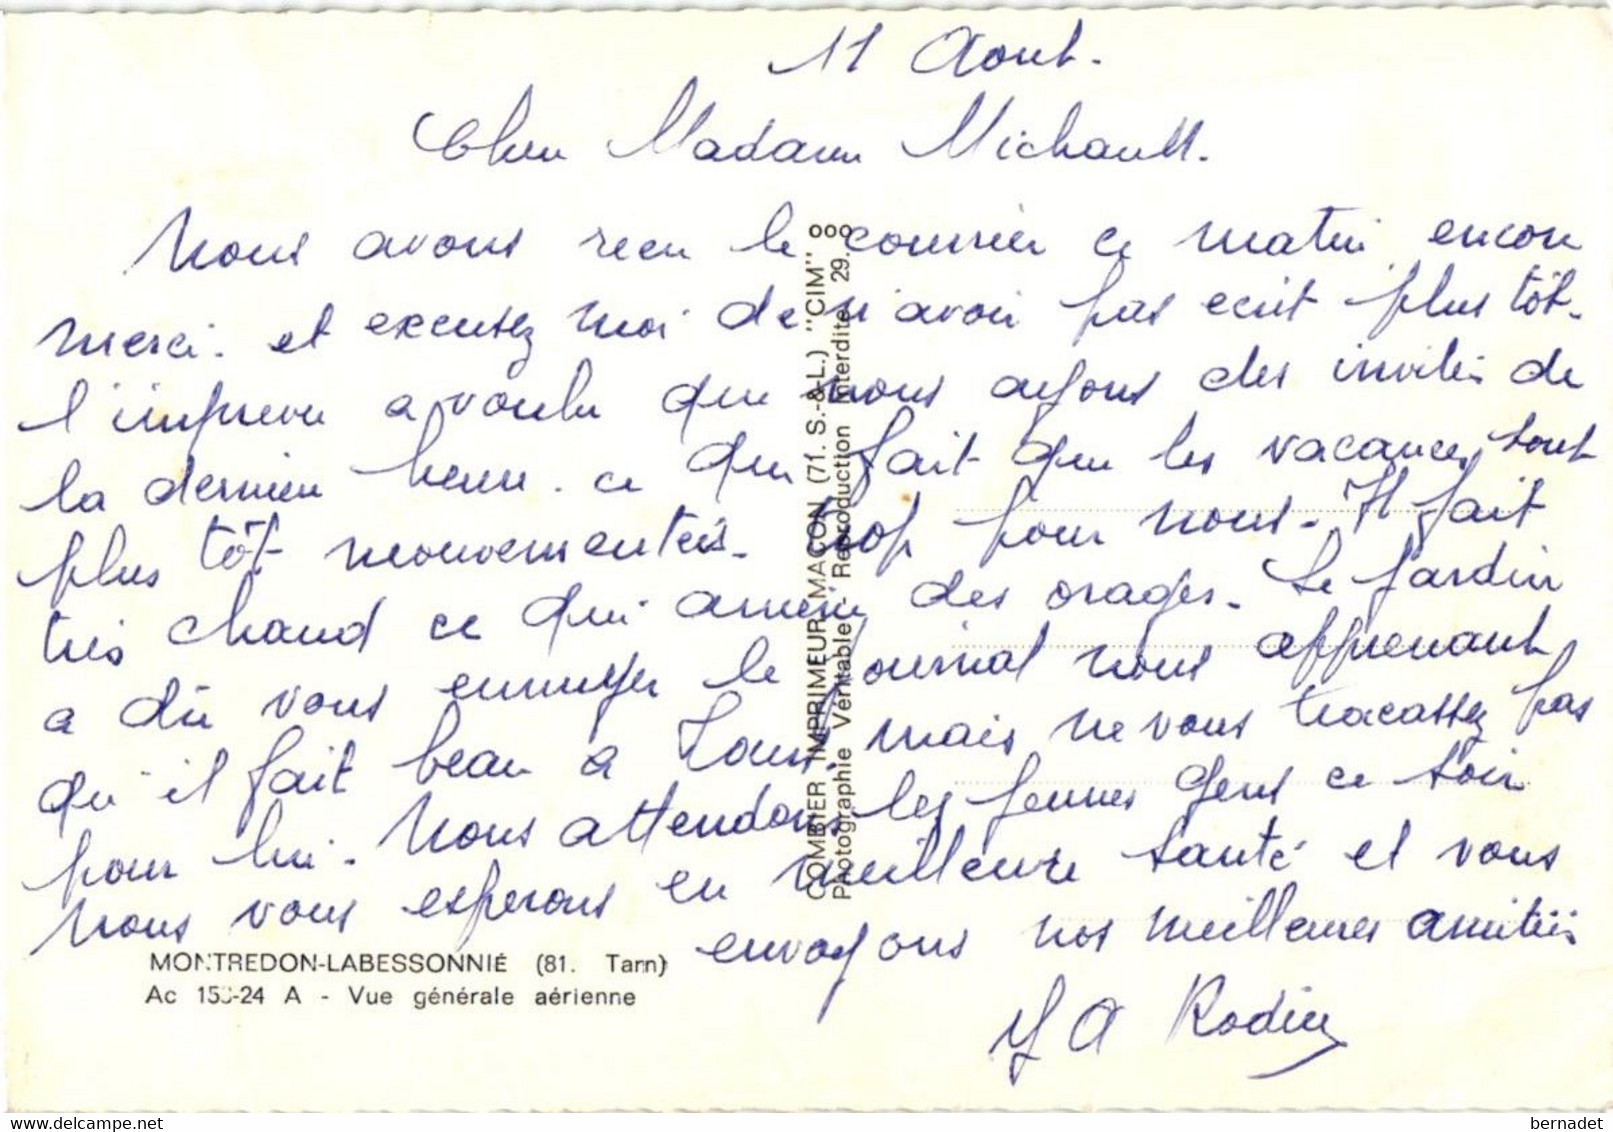 11 Aout.
Chere Madame Michault.
Nous avons recu le courrier ce matin encore
merci. et excusez moi de n'avoir pas ecrit plus tôt.
l'imprevu a voulu que nous ayons des invités de
la derniere heure. ce qui fait que les vacances sont
plus tôt mouvementeés. trop pour nous. Il fait
très chaud ce qui amène des orages. Le jardin
a dû vous ennuyer le journal nous apprenant
qu'il fait beau a Tours. mais ne vous tracassez pas
pour lui. Nous attendons les jeunes gens ce soir
nous vous esperons en meilleure santé et vous
envoyons nos meilleures amitiés
Rodiez
MONTREDON-LABESSONNIÉ (81. Tarn)
Ac 153-24 A - Vue générale aérienne
COMBIER IMPRIMEUR MACON (71. S.-&-L.) "CIM"
Photographie Véritable - Reproduction Interdite 29.
bernadet